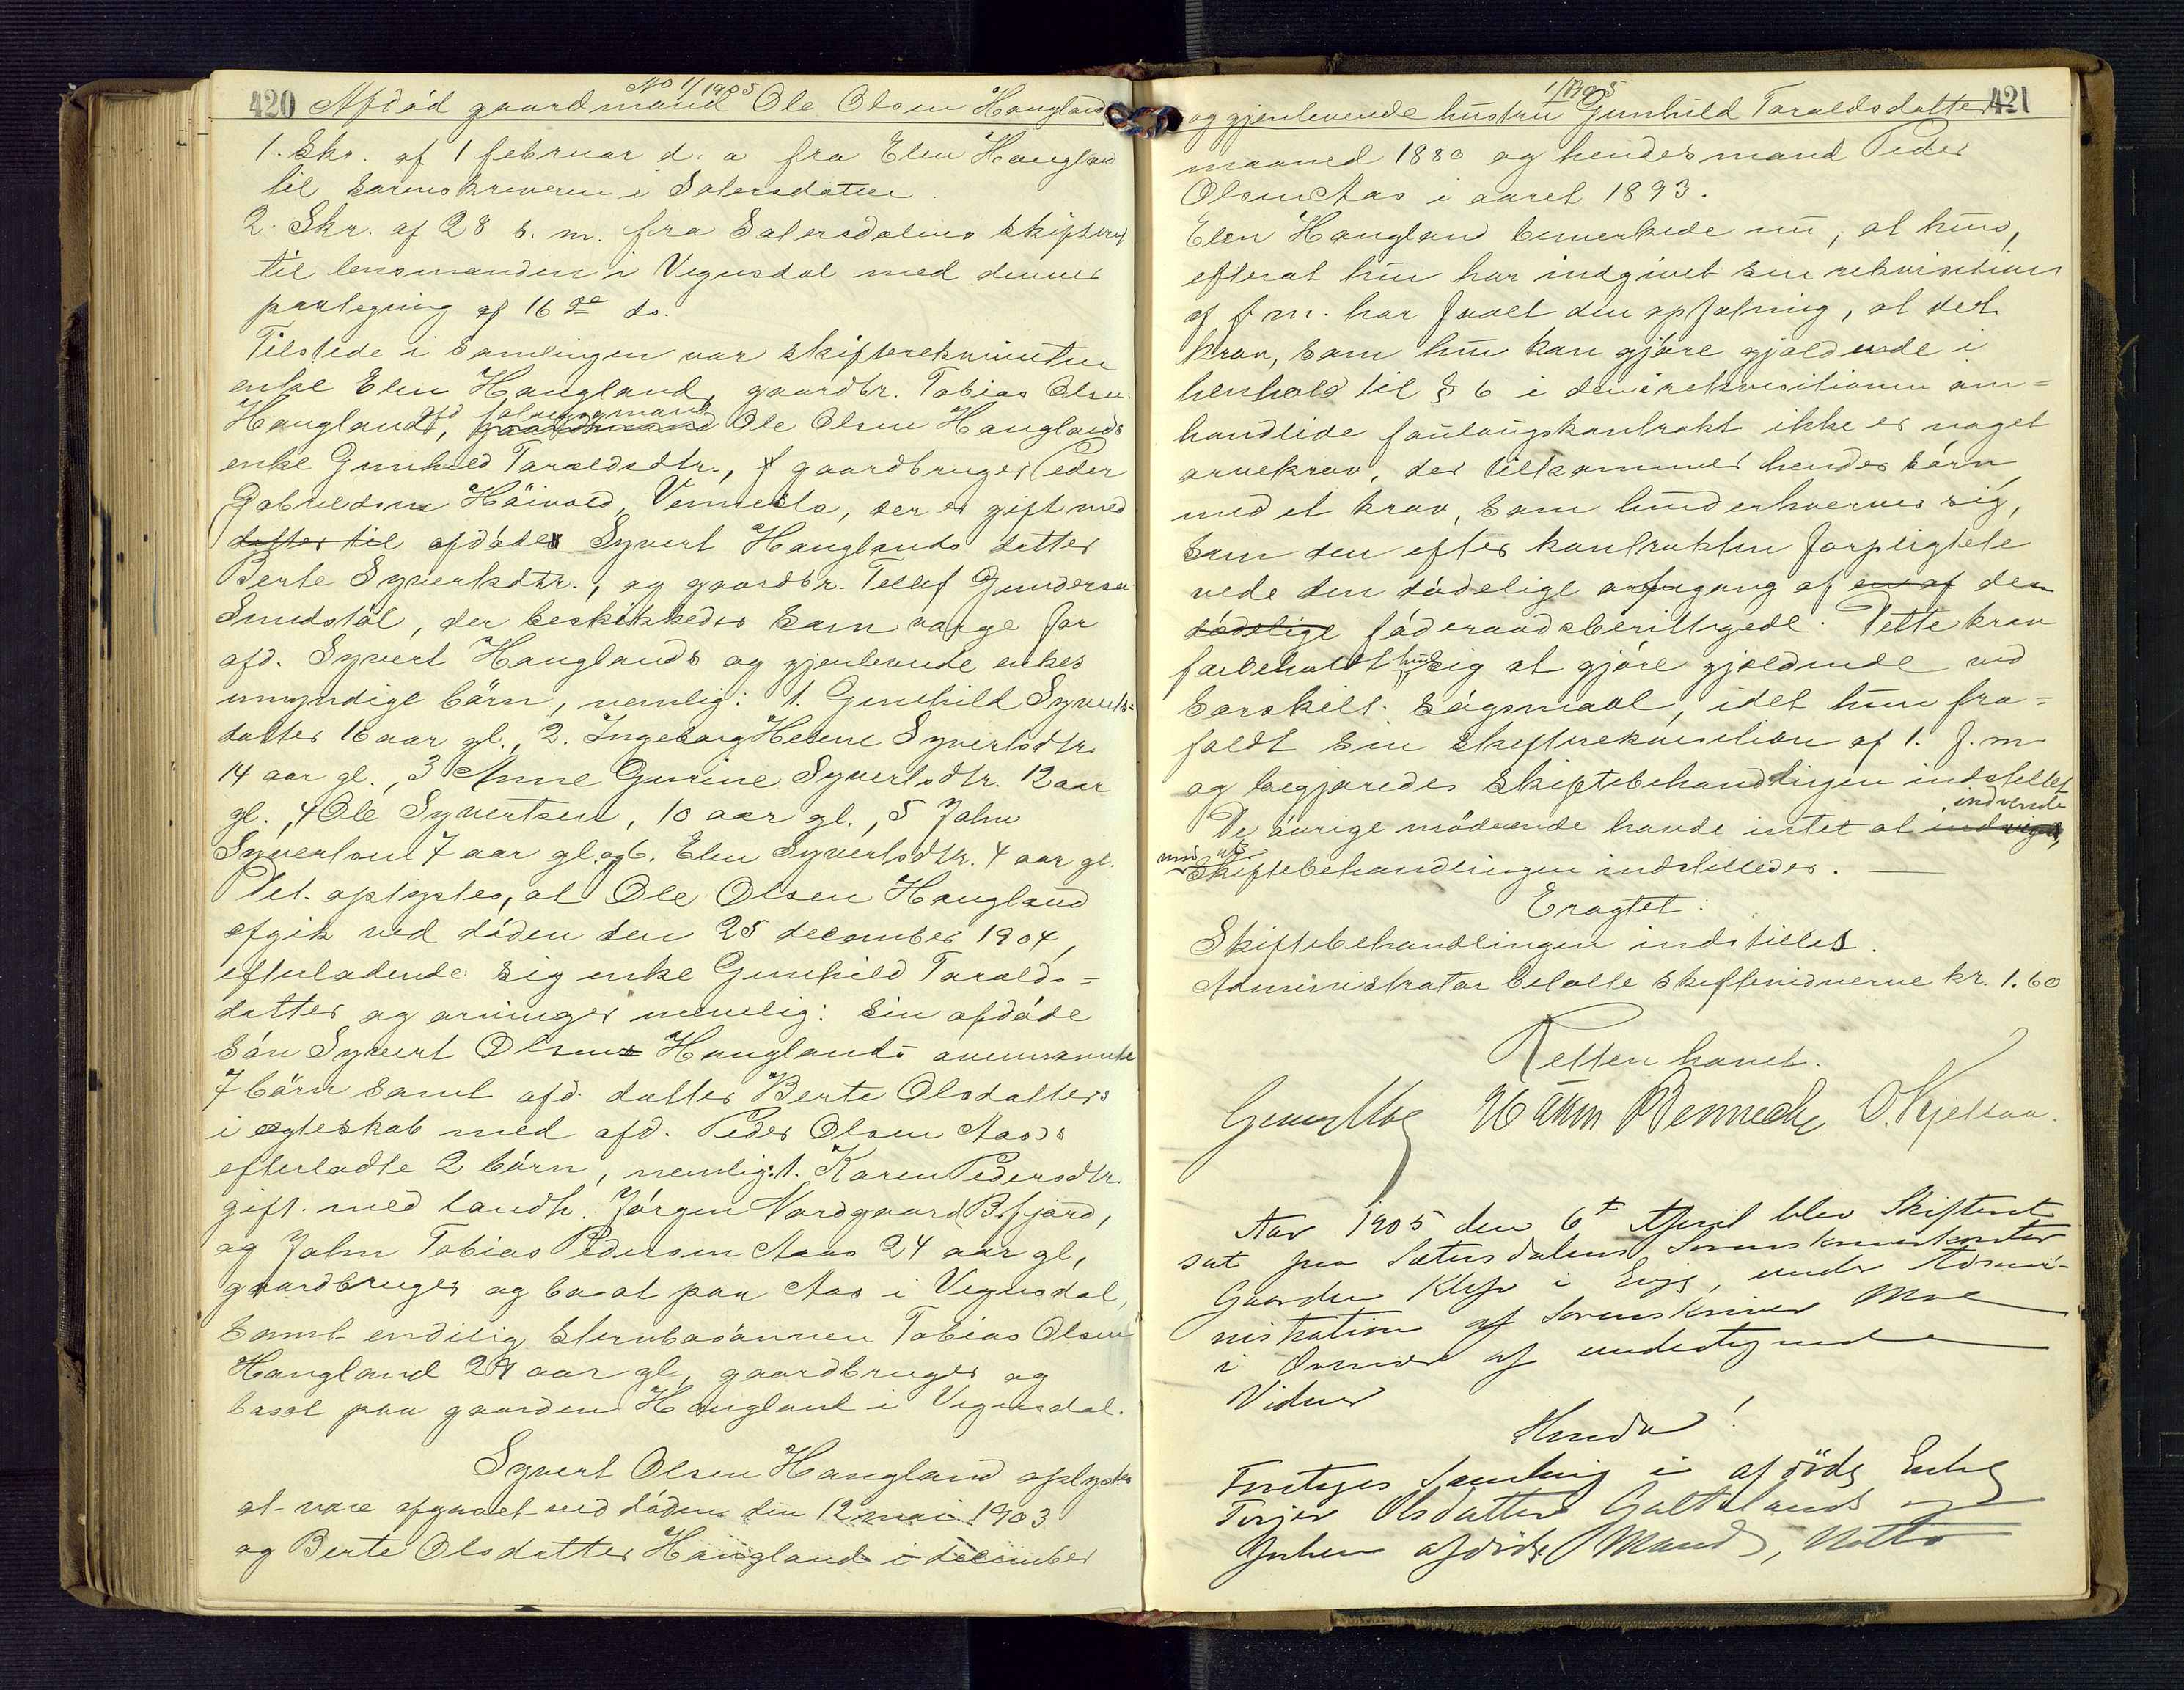 No 1/1905
420 Afdød gaardmand Ole Olsen Haugland
1. Skr. af 1 februar d. a fra Elen Haugland
til sorenskriveren i Sætersdalen.
2. Skr. af 28 s. m. fra Sætersdalens skifteret
til lensmanden i Vegusdal med dennes
paategning af 16de ds.
Tilstede i samlingen var skifterekvirenten
enke Elen Haugland, gaardbr. Tobias Olsen
Haugland, afd føderaadsmand Ole Olsen Hauglands
enke Gunhild Taraldsdtr., gaardbruger Peder
Gabrielsen Häivold, Vennesla, der er gift med
datter til afdøde Syvert Hauglands datter
Berte Syvertsdtr., og gaardbr. Tellef Gundersen
Smedstøl, der beskikkedes som værge for
afd. Syvert Hauglands og gjenlevende enkes
umyndige børn, nemlig: 1. Gunhild Syverts=
datter 16 aar gl., 2. Ingeborg Helene Syvertsdtr.
14 aar gl., 3 Anne Gurine Syvertsdtr. 12 aar
gl., 4 Ole Syvertsen, 10 aar gl., 5 John
Syvertsen 7 aar gl. og 6. Elen Syvertsdtr. 4 aar gl.
Det oplystes, at Ole Olsen Haugland
afgik ved døden den 25 december 1904,
efterladende sig enke Gunhild Taralds=
datter og arvinger nemlig: sin afdøde
søn Syvert Olsen Hauglands ovennævnte
7 børn samt afd. datter Berte Olsdatters
i ægteskab med afd. Peder Olsen Aas's
efterladte 2 børn, nemlig: 1. Karen Pedersdtr.
gift med landh. Jørgen Nordgaard Bøfjærd,
og John Tobias Pedersen Aas 24 aar gl,
gaardbruger og bosat paa Aas i Vegusdal,
samt endelig sternbosønnen Tobias Olsen
Haugland 24 aar gl, gaardbruger og
bosat paa gaarden Haugland i Vegusdal.
Syvert Olsen Haugland oplystes
at være afgaaet ved døden den 12 mai 1903
og Berte Olsdatter Haugland i december
1/1905
og gjenlevende hustru Gunhild Taraldsdatter 421
maaned 1880 og hendes mand Peder
Olsen Aas i aaret 1893.
Elen Haugland bemerkede nu, at hun,
efterat hun har indgivet sin rekvisition
af f m. har faaet den opfatning, at det
krav, som hun kan gjøre gjældende i
henhold til § 6 i den i rekvisitionen om=
handlede føderaadskontrakt ikke er noget
arvekrav, der tilkommer hendes børn,
med et krav, som hun erhverver sig,
som den efter kontrakten forpligtede
vede den dødelige afgang af en af den
dødelige føderaadsberettigede. Dette krav
forbeholdt hun sig at gjøre gjældende ved
særskilt søgsmaal, idet hun fra=
faldt sin skifterekvisition af 1. f. m
og begjæredes skiftebehandlingen indstillet.
De øvrige mødende havde intet at indvende
mod at skiftebehandlingen indstilledes.
Eragtet:
Skiftebehandlingen indstilles.
Administrator betalte skiftevidnerne kr. 1.60
Retten hævet.
Georg Moe Bennecke O. Kjetsaa.
Aar 1905 den 6t April blev Skifteret
sat paa Sætersdalens Sorenskriverkontor
Gaarden Klep i Evje, under Admi-
nistration af Sorenskriver Moe
i Overvær af undertegnede
Vidner
Hvorda!
Foretoges Samling i afdøde Enke
Torjer Olsdatter Galtelands og
hendes afdøde Mand, Notto